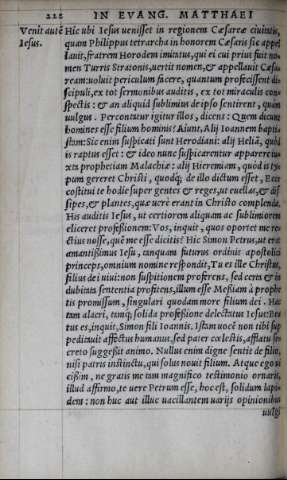 212 IN EVANG. MATTHAEI
Venit autē Iesus.
Hic ubi Iesus uenisset in regionem Cæsareæ ciuitatis,
quam Philippus tetrarcha in honorem Cæsaris sic appel
lauit, fratrem Herodem imitatus, qui ei cui prius fuit no-
men Turris Stratonis, uertit nomen, & appellauit Cæsa
ream: uoluit periculum facere, quantum profecissent di-
scipuli, ex tot sermonibus auditis, ex tot miraculis con-
spectis: & an aliquid sublimius de ipso sentirent, quàm
uulgus. Percontatur igitur illos, dicens: Quem dicunt
homines esse filium hominis? Aiunt, Alij Ioannem bapti-
stam: Sic enim suspicati sunt Herodiani: alij Heliã, quòd
is raptus esset: & ideo nunc suspicarentur apparere iu-
xta prophetiam Malachiæ: alij Hieremiam, quòd is ty-
pum gereret Christi, quodq; de illo dictum esset, Ecce
costitui te hodie super gentes & reges, ut euellas, & dis
sipes, & plantes, quæ uere erant in Christo complenda.
His auditis Iesus, ut certiorem aliquam ac sublimiorem
eliceret professionem: Vos, inquit, quos oportet me re-
ctius nosse, quē me esse dicitis? Hic Simon Petrus, ut erat
amantissimus Iesu, tanquam futurus ordinis apostolici
princeps, omnium nomine respondit, Tu es ille Christus,
filius dei uiui: non suspitionem proferens, sed certa & in
dubitata sententia profitens, illum esse Messiam à prophe
tis promissum, singulari quodam more filium dei. Hac
tam alacri, tamq; solida professione delectatus Iesus: Bea
tus es, inquit, Simon fili Ioannis. Istam uocē non tibi sup
peditauit affectus humanus, sed pater cœlestis, afflatu se-
creto suggessit animo. Nullus enim digne sentit de filio,
nisi patris instinctu, qui solus nouit filium. Atque ego ui
cissim, ne gratis me tam magnifico testimonio ornaris,
illud affirmo, te uere Petrum esse, hoc est, solidum lapi-
dem: non huc aut illuc uacillantem uarijs opinionibus
uulgi